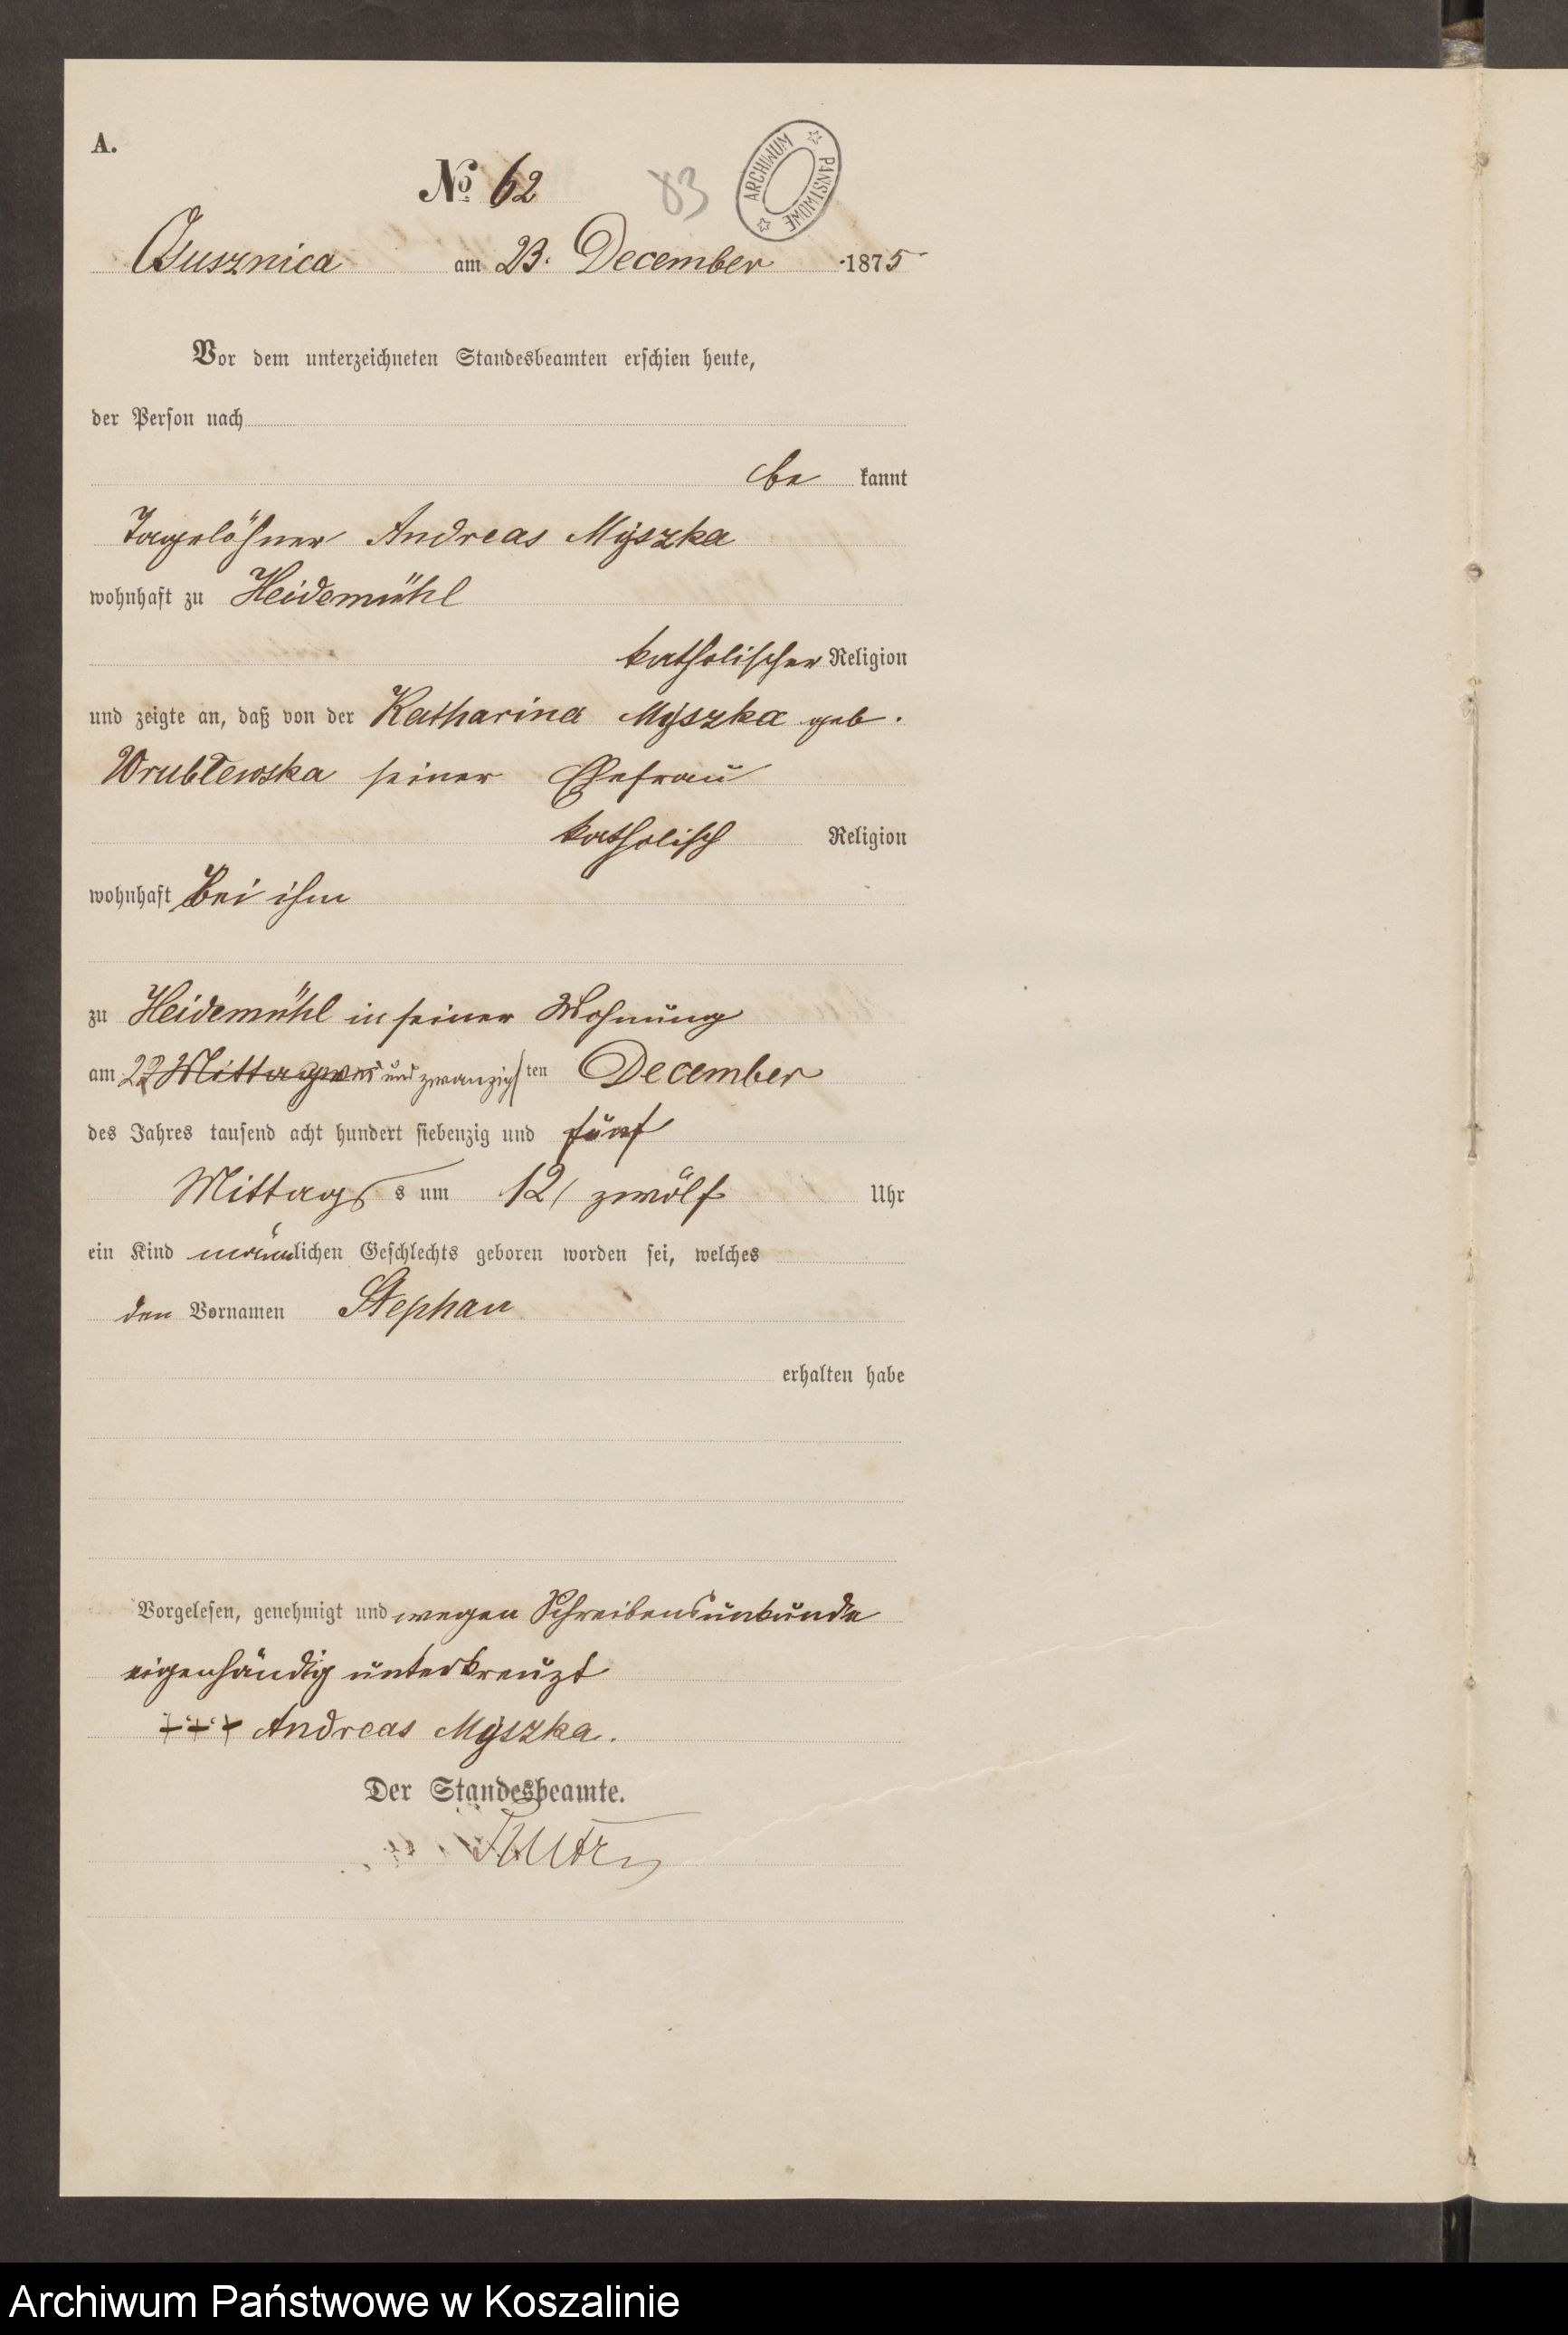 A.
№ 62
83
ARCHIWUM PAŃSTWOWE
Osusznica am 23. December 1875
Vor dem unterzeichneten Standesbeamten erschien heute,
der Person nach
be kannt
Tagelöhner Andreas Myszka
wohnhaft zu Heidemühl
katholischer Religion
und zeigte an, daß von der Katharina Myszka geb.
Wrublewska seiner Ehefrau
katholisch Religion
wohnhaft bei ihm
zu Heidemühl in seiner Wohnung
am 22 Mittag und zwanzig ten December
des Jahres tausend acht hundert siebenzig und fünf
Mittags s um 12/ zwölf Uhr
ein Kind männlichen Geschlechts geboren worden sei, welches
den Vornamen Stephan
erhalten habe
Vorgelesen, genehmigt und wegen Schreibensunkunde
eigenhändig unterkreuzt
+++ Andreas Myszka.
Der Standesbeamte.
Archiwum Państwowe w Koszalinie